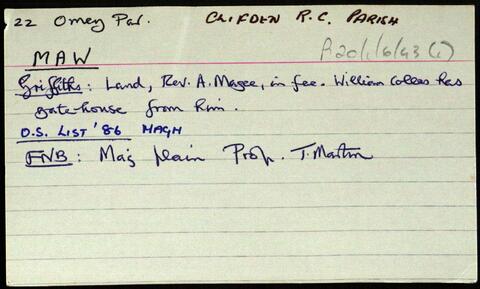 22 Omey Par. CLIFDEN R.C. PARISH
P.20/1/6/43 (1)
MAW
Griffiths: Land, Rev. A. Magee, in fee. William Collens has
gate-house from him.
O.S. LIST '86 MAGH
FNB: Maij plain Prop. T. Martin